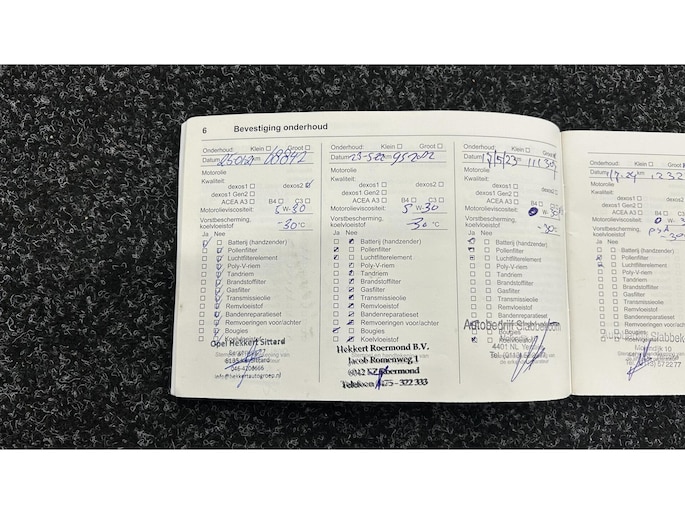 6 Bevestiging onderhoud
Onderhoud: Klein Groot
Datum km 68842
Motorolie
Kwaliteit:
dexos1 dexos2
dexos1 Gen2
ACEA A3 B4 C3
Motorolieviscositeit: 5 W-30
Vorstbescherming, koelvloeistof -30 °C
Ja Nee
Batterij (handzender)
Pollenfilter
Luchtfilterelement
Poly-V-riem
Tandriem
Brandstoffilter
Gasfilter
Transmissieolie
Remvloeistof
Bandenreparatieset
Remvoeringen voor/achter
Bougies
Koelvloeistof
Opel Hekkert Sittard
info@hekkertautogroep.nl
Onderhoud: Klein Groot
Datum 23-5-22 km 95202
Motorolie
Kwaliteit:
dexos1 dexos2
dexos1 Gen2
ACEA A3 B4 C3
Motorolieviscositeit: 5 W-30
Vorstbescherming, koelvloeistof -30 °C
Ja Nee
Batterij (handzender)
Pollenfilter
Luchtfilterelement
Poly-V-riem
Tandriem
Brandstoffilter
Gasfilter
Transmissieolie
Remvloeistof
Bandenreparatieset
Remvoeringen voor/achter
Bougies
Koelvloeistof
Hekkert Roermond B.V.
Jacob Romenweg 1
6042 EZ Roermond
Telefoon 0475 - 322 333
Onderhoud: Klein Groot
Datum km
Motorolie
Kwaliteit:
dexos1 dexos2
dexos1 Gen2
ACEA A3 B4 C3
Motorolieviscositeit: 0 W-
Vorstbescherming, koelvloeistof -30
Ja Nee
Batterij (handzender)
Pollenfilter
Luchtfilterelement
Poly-V-riem
Tandriem
Brandstoffilter
Gasfilter
Transmissieolie
Remvloeistof
Bandenreparatieset
Remvoeringen voor/achter
Bougies
Koelvloeistof
Autobedrijf Slabbekoorn
4401 NL
Onderhoud: Klein
Datum km
Motorolie
Kwaliteit:
dexos1
dexos1 Gen2
ACEA A3 B4
Motorolieviscositeit: 0 W-3
Vorstbescherming, koelvloeistof
Ja Nee
Batterij (handzender)
Pollenfilter
Luchtfilterelement
Poly-V-riem
Tandriem
Brandstoffilter
Gasfilter
Transmissieolie
Remvloeistof
Bandenreparatieset
Remvoeringen voor/
Bougies